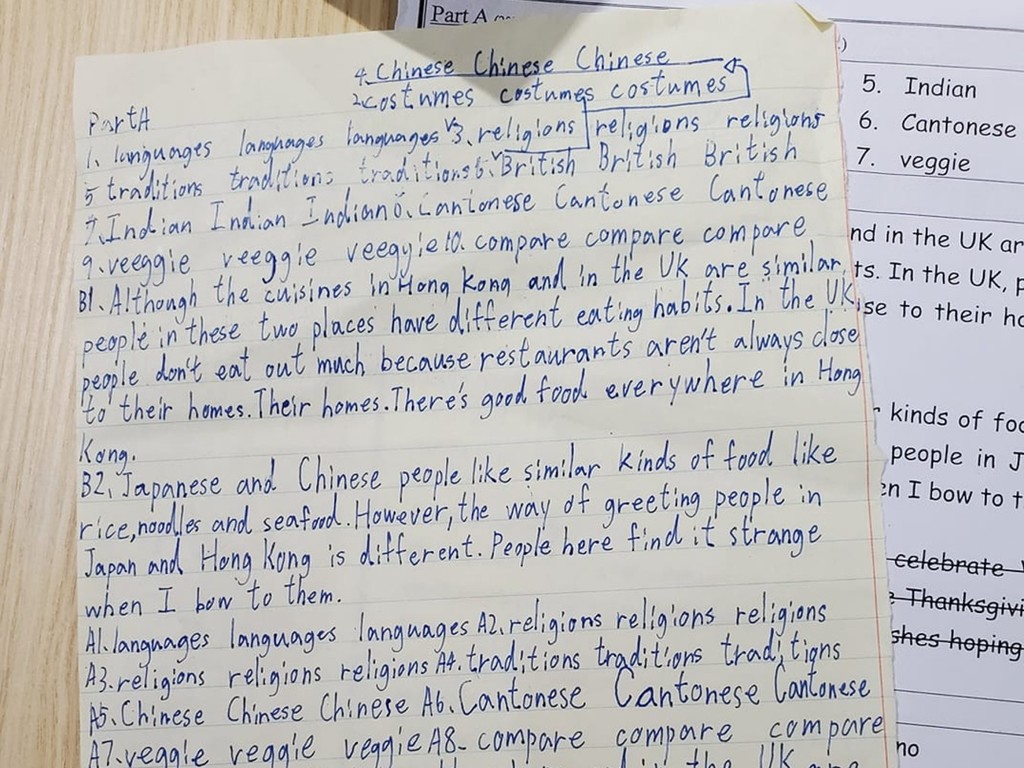 Part A
4. Chinese Chinese Chinese
2. costumes costumes costumes
Part A
1. languages languages languages 3. religions religions religions
5 traditions traditions traditions 6. British British British
7. Indian Indian Indian 8. Cantonese Cantonese Cantonese
9. veeggie veeggie veegyie 10. compare compare compare
B1. Although the cuisines in Hong Kong and in the UK are similar,
people in these two places have different eating habits. In the UK,
people don't eat out much because restaurants aren't always close
to their homes. Their homes. There's good food everywhere in Hong
Kong.
B2. Japanese and Chinese people like similar kinds of food like
rice, noodles and seafood. However, the way of greeting people in
Japan and Hong Kong is different. People here find it strange
when I bow to them.
A1. languages languages languages A2. religions religions religions
A3. religions religions religions A4. traditions traditions traditions
A5. Chinese Chinese Chinese A6. Cantonese Cantonese Cantonese
A7. veggie veggie veggie A8. compare compare compare
the UK are
5. Indian
6. Cantonese
7. veggie
nd in the UK ar
ts. In the UK, p
se to their ho
kinds of foo
people in J
en I bow to t
celebrate
Thanksgivi
shes hoping
no